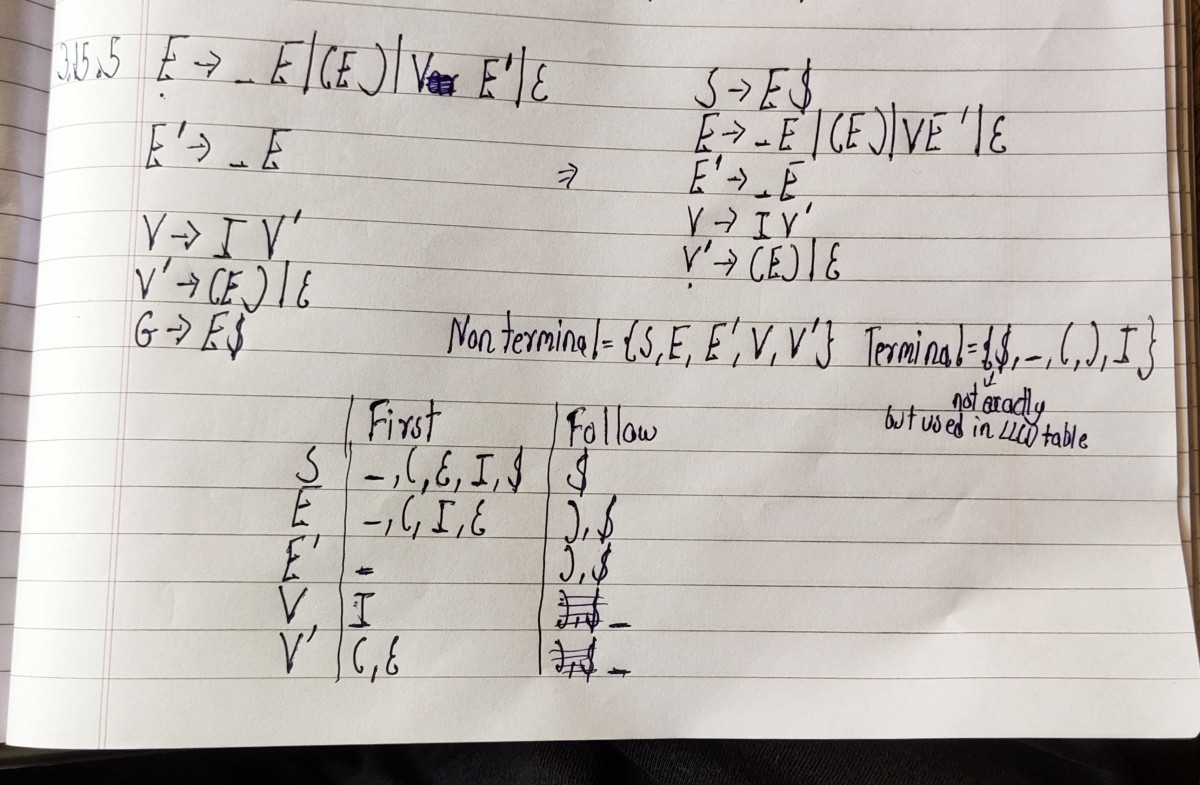 3.15.5 E → - E | (E) | V E' | ε
E' → - E
V → I V'
V' → (E) | ε
G → E$
⇒
S → E$
E → - E | (E) | VE' | ε
E' → - E
V → I V'
V' → (E) | ε
Non terminal = {S, E, E', V, V'} Terminal = {$, -, (, ), I}
not exactly
but used in LL(1) table
First Follow
S -, (, ε, I, $ $
E -, (, I, ε ), $
E' - ), $
V I -
V' (, ε -